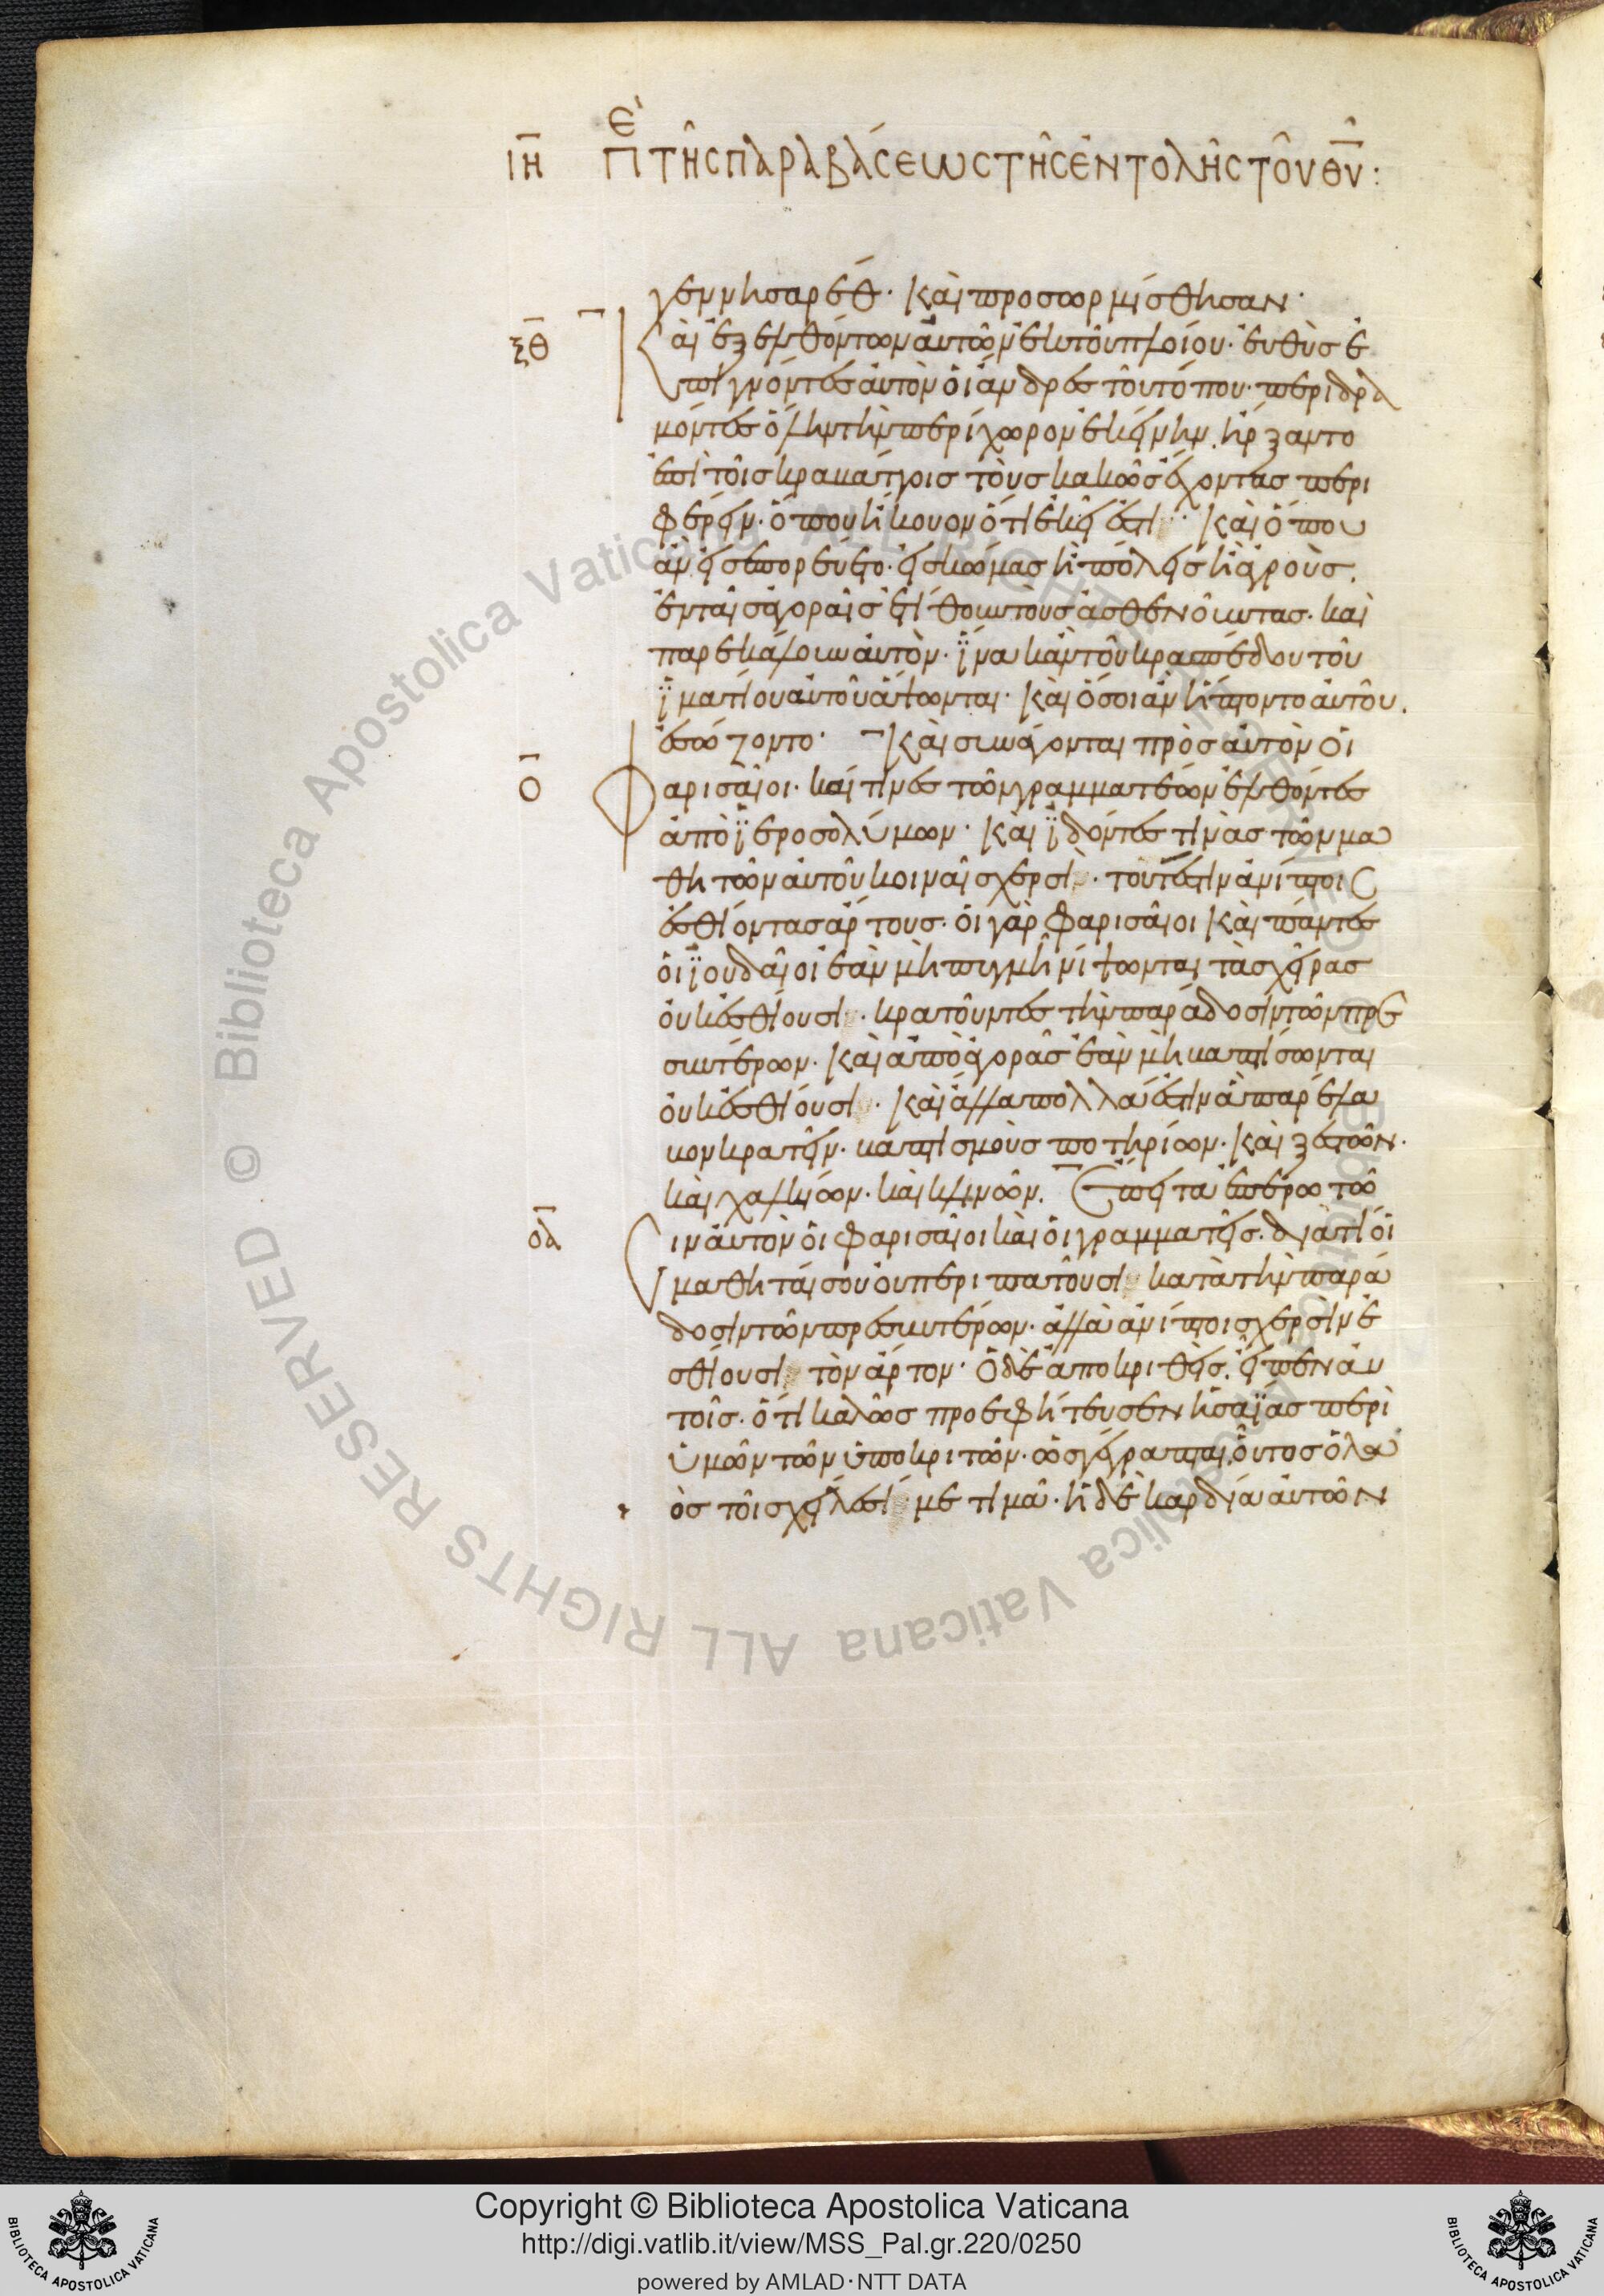 ιη Πε τῆς παραβάσεως τῆς ἐντολῆς τοῦ θυ:
γεννησαρέθ· Καὶ προσωρμίσθησαν·
ξθ Καὶ ἐξελθόντων ἀυτῶν ἐκ τοῦ πλοίου· ἐυθὺς ἐ
πιγνόντες ἀυτὸν ὁι ἄνδρες τοῦ τόπου· περιδρα
μόντες ὅλην τὴν περίχωρον ἐκείνην, ἤρξαντο
ἐπὶ τοῖς κραβάττοις τοὺς κακῶς ἔχοντας περι
φέρειν· ὅπου ἤκουον ὅτι ἐκεῖ ἐστι· Καὶ ὅπου
ἂν εἰσεπορεύετο· εἰς κώμας ἢ πόλεις ἢ ἀγροὺς,
ἐν ταῖς ἀγοραῖς ἐτίθουν τοὺς ἀσθενοῦντας· καὶ
παρεκάλουν ἀυτὸν· ἵνα κἂν τοῦ κρασπέδου τοῦ
ἱματίου ἀυτοῦ ἅψωνται· Καὶ ὅσοι ἂν ἥπτοντο ἀυτοῦ,
ἐσώζοντο· Καὶ συνάγονται πρὸς ἀυτὸν Οἱ
ο Φαρισαῖοι· καί τινες τῶν γραμματέων ἐλθόντες
ἀπὸ ἱεροσολύμων· Καὶ ἰδόντες τινὰς τῶν μα
θητῶν ἀυτοῦ κοιναῖς χερσὶ· τουτέστιν ἀνίπτοις
ἐσθίοντας ἄρτους· ὁι γὰρ Φαρισαῖοι Καὶ πάντες
ὁι ἰουδαῖοι ἐὰν μὴ πυγμῆ νίψωνται τὰς χεῖρας
ὀυκ ἐσθίουσι· κρατοῦντες τὴν παράδοσιν τῶν πρε
σβυτέρων· Καὶ ἀπὸ ἀγορᾶς ἐὰν μὴ βαπτίσωνται
ὀυκ ἐσθίουσι· Καὶ ἄλλα πολλά ἐστιν ἃ παρέλα
βον κρατεῖν· βαπτισμοὺς ποτηρίων· Καὶ ξεστῶν·
καὶ χαλκίων· καὶ κλινῶν, Ἔπειτα ἐπερωτῶ
οα σιν ἀυτὸν ὁι Φαρισαῖοι καὶ ὁι γραμματεῖς· διατί ὁι
μαθηταί σου ὀυ περιπατοῦσι κατὰ τὴν παρά
δοσιν τῶν πρεσβυτέρων· ἀλλὰ ἀνίπτοις χερσὶν ἐ
σθίουσι τὸν ἄρτον· Ὁ δὲ ἀποκριθεὶς, εἶπεν ἀυ
τοῖς· ὅτι καλῶς προεφήτευσεν ἡσαΐας περὶ
ὑμῶν τῶν ὑποκριτῶν· ὡς γέγραπται, οὗτος ὁ λα
ὸς τοῖς χείλεσί με τιμᾶ· ἡ δὲ καρδία ἀυτῶν
Copyright © Biblioteca Apostolica Vaticana
http://digi.vatlib.it/view/MSS_Pal.gr.220/0250
powered by AMLAD·NTT DATA
BIBLIOTECA APOSTOLICA VATICANA
BIBLIOTECA APOSTOLICA VATICANA
© Biblioteca Apostolica Vaticana ALL RIGHTS RESERVED © Biblioteca Apostolica Vaticana ALL RIGHTS RESERVED